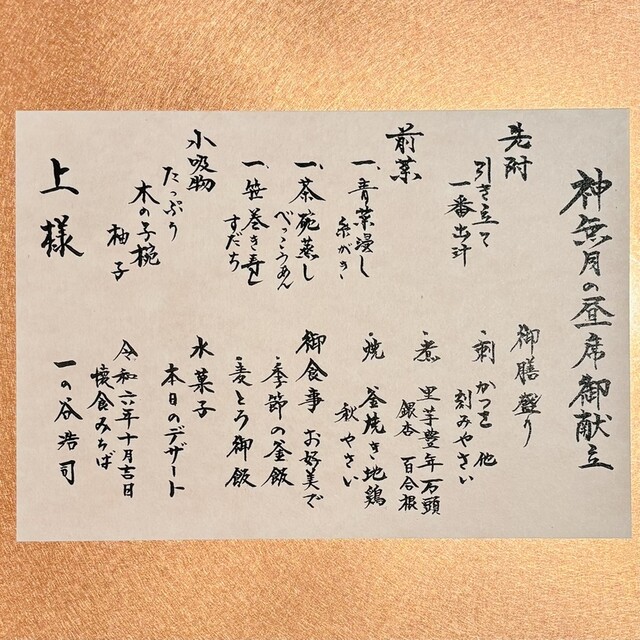 神無月の昼席御献立
先附
引き立て
一番出汁
前菜
一、青菜浸し
糸がき
一、茶碗蒸し
べっこうあん
一、笹巻き寿し
すだち
小吸物
たっぷり
木の子椀
柚子
御膳盛り
・刺 かつを 他
刻みやさい
・煮 里芋豊年石頭
銀杏 百合根
・焼 釜焼き地鶏
秋やさい
御食事 お好美で
・季節の釜飯
・麦とろ御飯
水菓子
本日のデザート
令和六年十月吉日
懐食みちば
一の谷浩司
上様